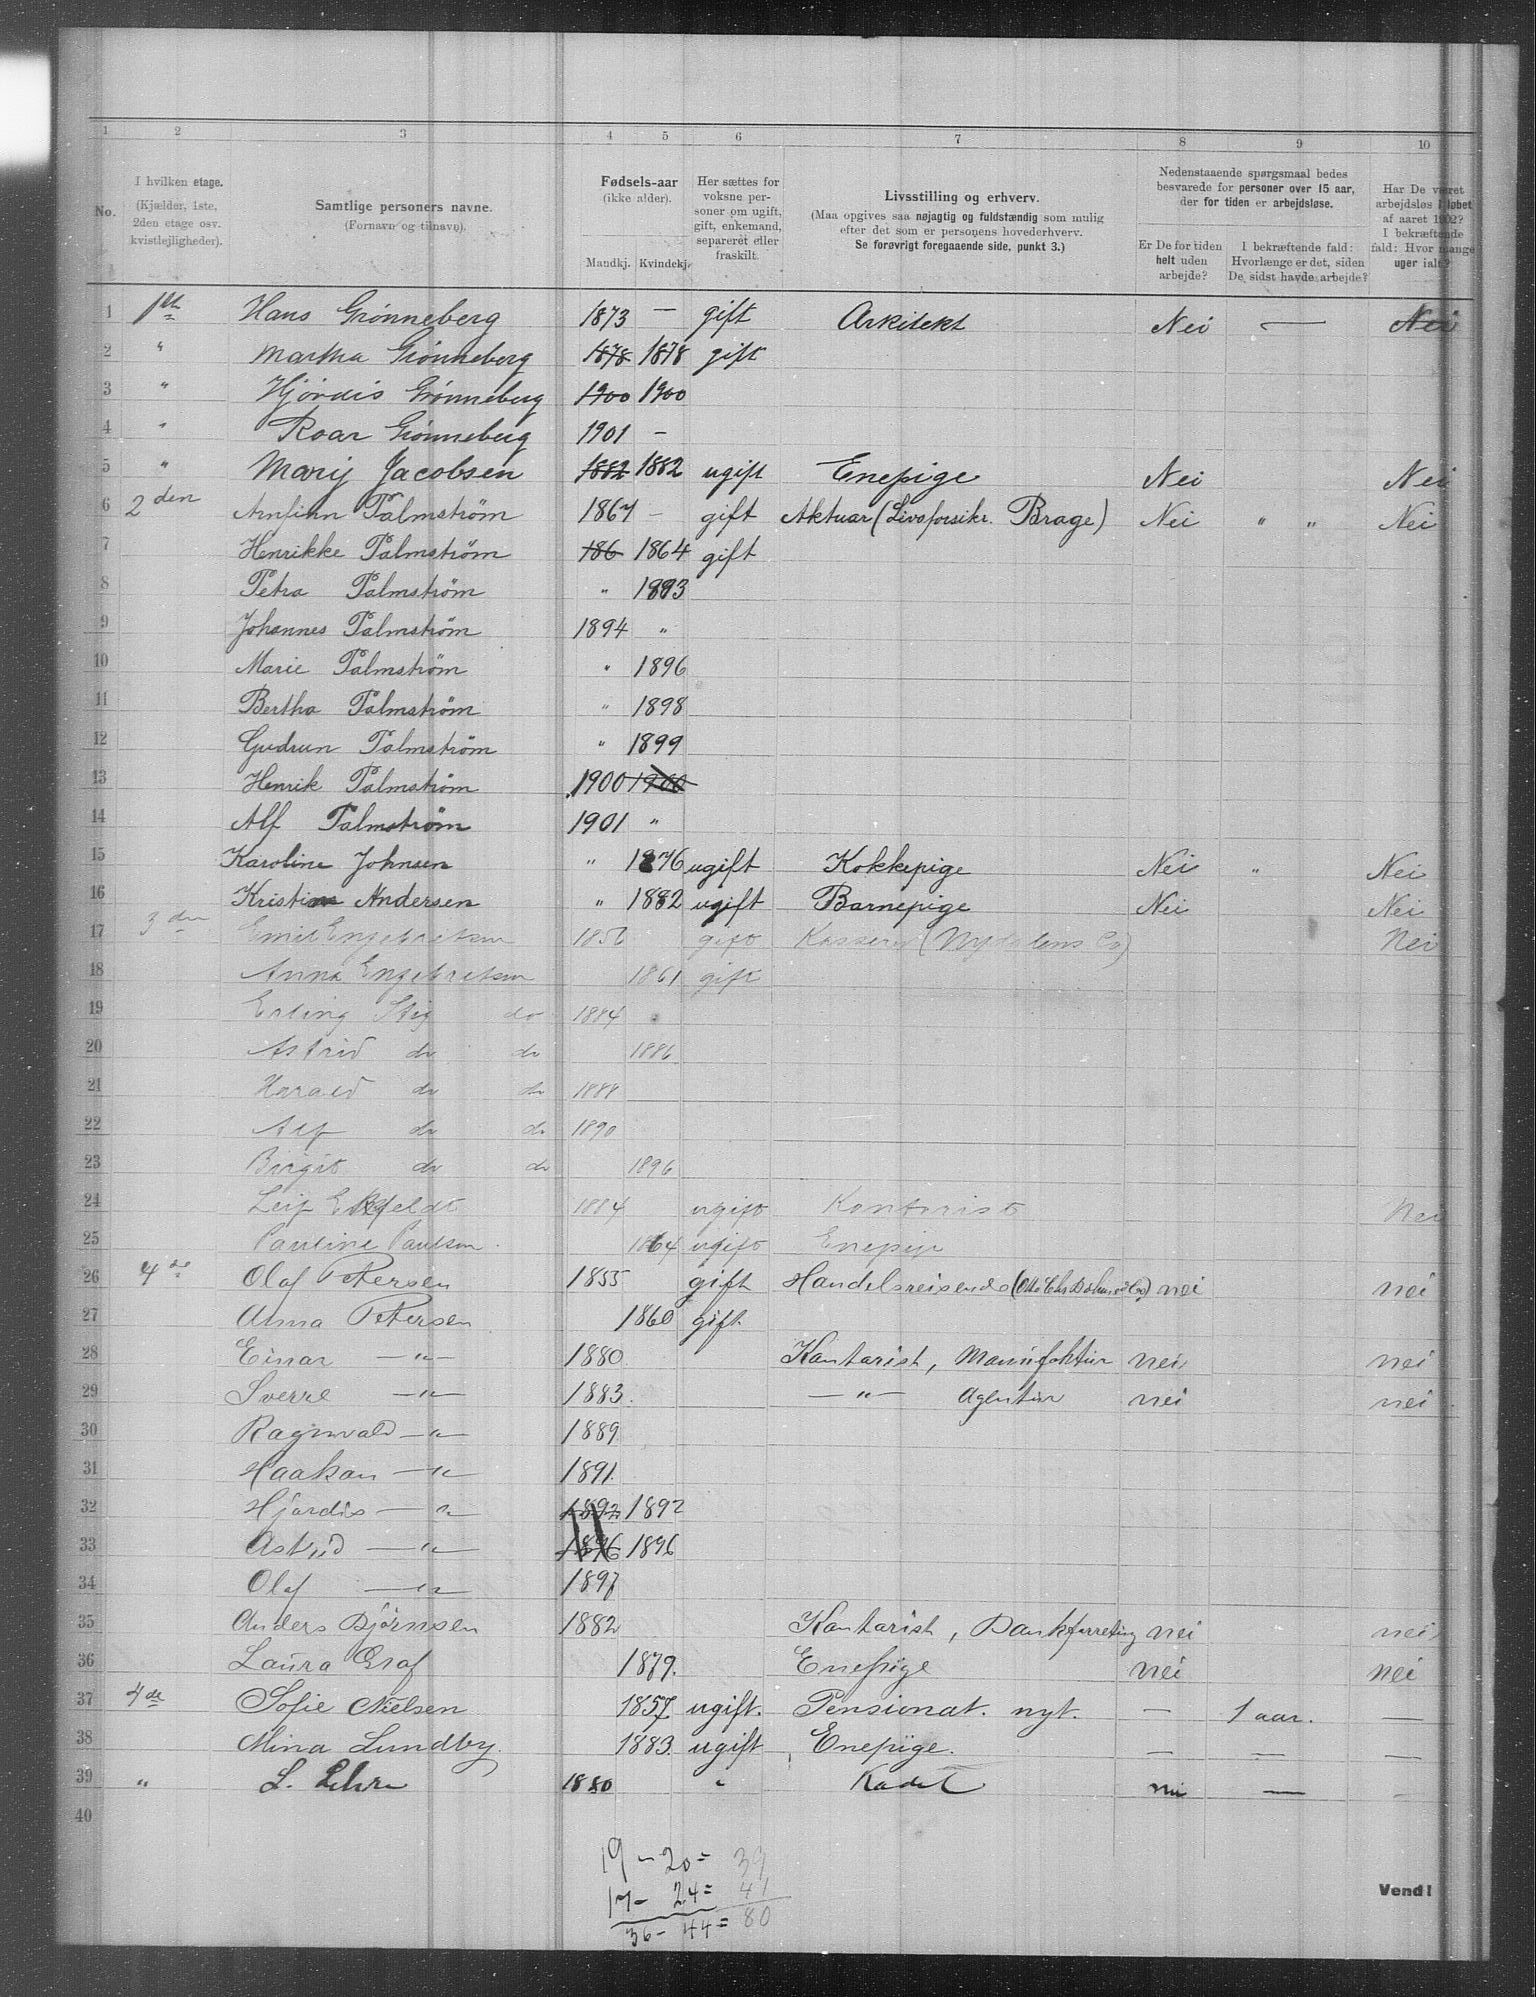 1 2 3 4 5 6 7 8 9 10
No.
I hvilken etage. (Kjælder, 1ste, 2den etage osv. kvistlejligheder).
Samtlige personers navne. (Fornavn og tilnavn).
Fødsels-aar (ikke alder). Mandkj. Kvindekj.
Her sættes for voksne personer om ugift, gift, enkemand, separeret eller fraskilt.
Livsstilling og erhverv. (Maa opgives saa nøjagtig og fuldstændig som mulig efter det som er personens hovederhverv. Se forøvrigt foregaaende side, punkt 3.)
Nedenstaaende spørgsmaal bedes besvarede for personer over 15 aar, der for tiden er arbejdsløse.
Er De for tiden helt uden arbejde?
I bekræftende fald: Hvorlænge er det, siden De sidst havde arbejde?
Har De været arbejdsløs i løbet af aaret 1902? I bekræftende fald: Hvor mange uger ialt?
1 1ste Hans Grønneberg 1873 — gift Arkitekt Nei — Nei
2 " Martha Grønneberg 1878 1878 gift
3 " Hjørdis Grønneberg 1900 1900
4 " Roar Grønneberg 1901 —
5 " Marij Jacobsen 1882 1882 ugift Enepige Nei Nei
6 2den Arnfinn Palmstrøm 1867 — gift Aktuar (Livsforsikr. Brage) Nei " " Nei
7 Henrikke Palmström 186 1864 gift
8 Petra Palmström " 1893
9 Johannes Palmström 1894 "
10 Marie Palmström " 1896
11 Bertha Palmström " 1898
12 Gudrun Palmström " 1899
13 Henrik Palmström 1900 1900
14 Alf Palmström 1901 "
15 Karoline Johnsen " 1876 ugift Kokkepige Nei " Nei
16 Kristine Andersen " 1882 ugift Barnepige Nei Nei
17 3die Emil Engebretsen 1856 gift Kasserer (Nydalens Co) Nei
18 Anna Engebretsen 1861 gift
19 Erling Stig do 1884
20 Astrid do do 1886
21 Harald do do 1888
22 Alf do do 1890
23 Birgit do do 1896
24 Leif 1884 ugift Kontorist Nei
25 Pauline Paulsen 1864 ugift Enepige
26 4de Olaf Petersen 1855 gift Handelsreisende nei nei
27 Anna Petersen 1860 gift
28 Einar —"— 1880 Kontorist, Manufaktur nei nei
29 Sverre —"— 1883. —"— Agentur nei nei
30 Ragnvald —"— 1889
31 Haakon —"— 1891.
32 Hjørdis —"— 1892 1892
33 Astrid —"— 1896 1896
34 Olaf —"— 1897
35 Anders Bjørnsen 1882 Kontorist, Bankforretning nei nei
36 Laura Graf 1879. Enepige nei nei
37 4de Sofie Nielsen 1857 ugift. Pensionat. nyt. — 1 aar. —
38 Mina Lundby. 1883. ugift Enepige. — — —
39 " L. Lehre 1880 " Kadet nei — —
40
19 - 20 = 39
17 - 24 = 41
36 - 44 = 80
Vend!